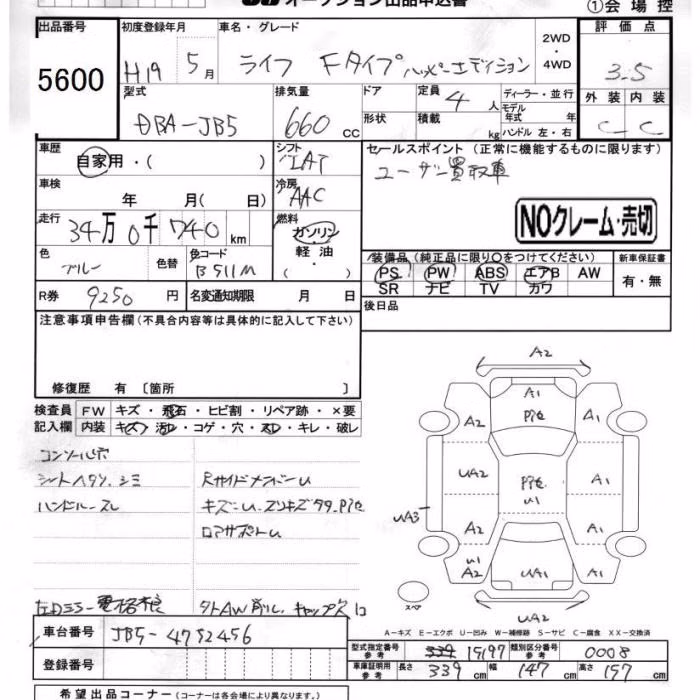 オークション出品申込書
①会場控
出品番号 初度登録年月 車名・グレード 評価点
5600 H19 5月 ライフ Fタイプ ハッピーエディション 2WD・4WD 3.5
型式 排気量 ドア 定員 4人 ディーラー・並行 外装 内装
DBA-JB5 660cc 形状 積載 kg モデル年式 年 C C
ハンドル 左・右
車歴 シフト セールスポイント(正常に機能するものに限ります)
自家用・( ) IAT ユーザー買取車
車検 年 月( 日) 冷房 AAC
走行 34万0千740km 燃料 ガソリン・軽油・( ) NOクレーム・売切
色 ブルー 色替 色コード B511M
装備品(純正品に限り○をつけてください) 新車保証書
PS PW ABS エアB AW 有・無
SR ナビ TV カワ
R券 9250円 名変通知期限 月 日 後日品
注意事項申告欄(不具合内容等は具体的に記入して下さい)
修復歴 有〔箇所 〕
検査員 FW キズ・飛石・ヒビ割・リペア跡・×要
記入欄 内装 キズ・汚レ・コゲ・穴・スレ・キレ・破レ
コンソール穴
シートヘタリ、シミ Rサイドメンバーu
ハンドルスレ キズ-u
ロアサポートu
キャップ欠
A2
A1
A2 Pﾀ色 A1
UA2 Pﾀ色 A1
u1
UA3
A2 A1
u1
A2 UA1 A1
スペア
UA2
A-キズ E-エクボ U-凹み W-補修跡 S-サビ C-腐食 XX-交換済
車台番号 JB5-4752456
型式指定番号 参考 15197 類別区分番号 参考 0008
登録番号
車庫証明用 参考 長さ 339cm 幅 147cm 高さ 157cm
希望出品コーナー(コーナーは各会場により異なります。)